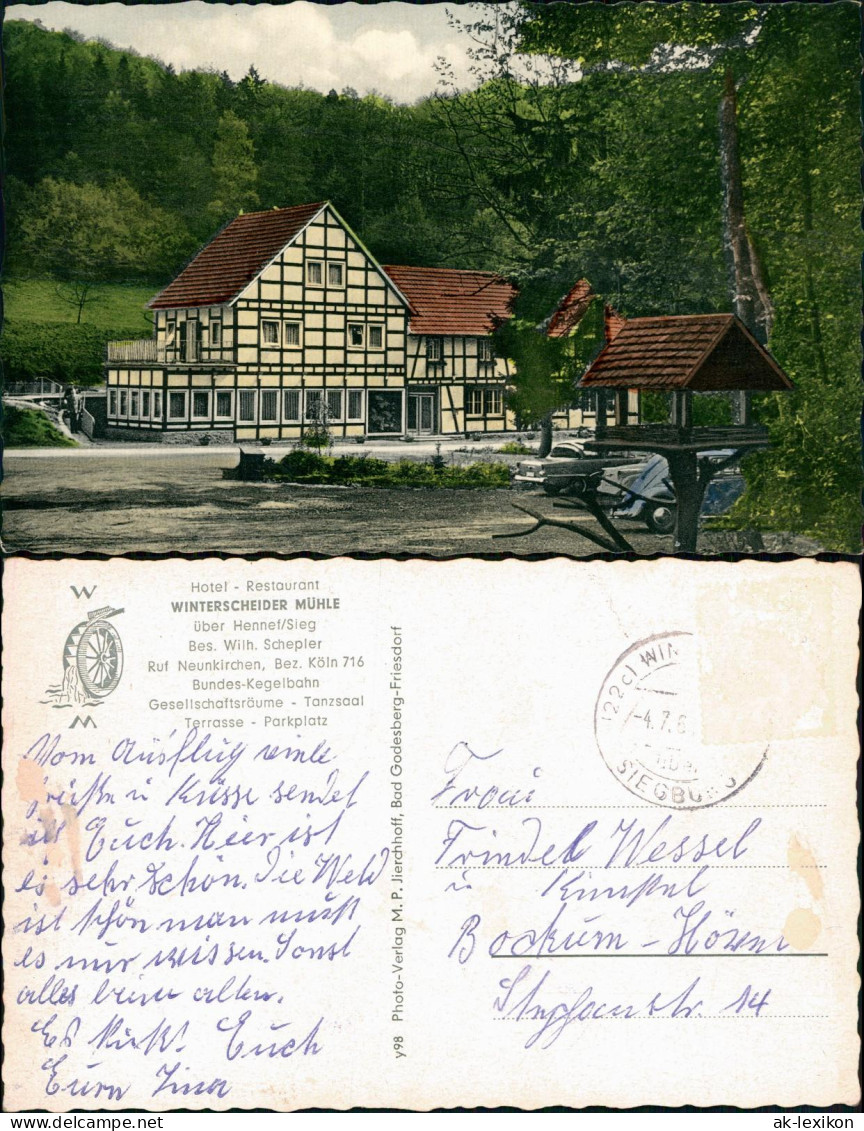 Hotel - Restaurant
WINTERSCHEIDER MÜHLE
über Hennef/Sieg
Bes. Wilh. Schepler
Ruf Neunkirchen, Bez. Köln 716
Bundes-Kegelbahn
Gesellschaftsräume - Tanzsaal
Terrasse - Parkplatz
W
M
Vom Ausflug viele
Grüße u Küsse sendet
Euch. Hier ist
es sehr schön. Die Weld
ist schön man muß
es nur wissen. Sonst
alles beim alten.
Es küßt Euch
y98 Photo-Verlag M. P. Jierchhoff, Bad Godesberg-Friesdorf
(22c) WIN
-4.7.6
SIEGBURG
Frau
Wessel
u
Bockum-Hövel
Stephanstr. 14
ansichtskarten-lexikon.de
ak-lexikon